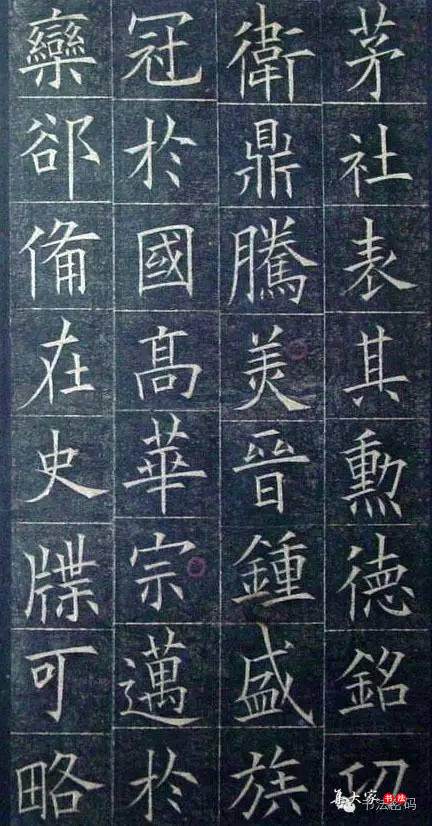 茅社表其勲德銘功
衛鼎騰美晉鍾盛族
冠於國髙華宗邁於
欒郤備在史牒可略
集大家 书法
书法密码